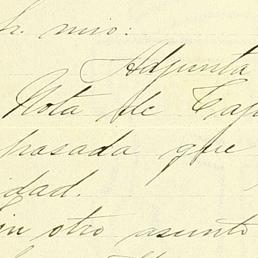 mio:
Adjunta
Nota de
pasada que
idad.
in otro asunto